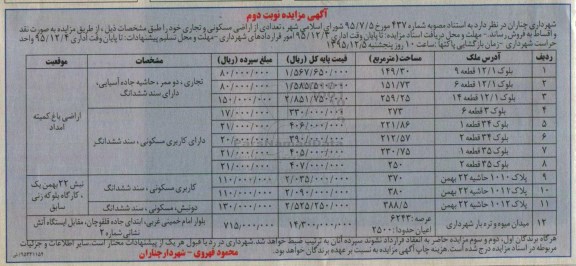 آگهی مزایده نوبت دوم
شهرداری چناران در نظر دارد به استناد مصوبه شماره ۴۳۷ مورخ ۹۵/۷/۵ شورای اسلامی شهر، تعدادی از اراضی مسکونی و تجاری خود را طبق مشخصات ذیل، از طریق مزایده به صورت نقد
و اقساط به فروش رساند. مهلت و محل دریافت اسناد مزایده: تا پایان وقت اداری ۹۵/۱۲/۳ امور قراردادهای شهرداری - مهلت و محل تسلیم پیشنهادات: تا پایان وقت اداری ۹۵/۱۲/۴ واحد
حراست شهرداری - زمان بازگشایی پاکتها: ساعت ۱۰ روز پنجشنبه ۱۳۹۵/۱۲/۵
ردیف آدرس ملک مساحت (مترمربع) قیمت پایه کل (ریال) مبلغ سپرده (ریال) مشخصات موقعیت
۱ بلوک ۱۲/۱ قطعه ۹ ۱۴۹/۳۰ ۱/۵۶۷/۶۵۰/۰۰۰ ۸۰/۰۰۰/۰۰۰
۲ بلوک ۱۲/۱ قطعه ۶ ۱۵۱/۷۳ ۸۰/۰۰۰/۰۰۰
۳ بلوک ۱۲/۱ قطعه ۱۴ ۲۵۹/۲۵ ۲/۸۵۱/۷۵۰/۰۰۰ ۱۵۰/۰۰۰/۰۰۰
تجاری، دو ممر، حاشیه جاده آسیایی، دارای سند ششدانگ
۴ بلوک ۳ قطعه ۶ ۲۷۳ ۳۳۰/۰۰۰/۰۰۰ ۱۷/۰۰۰/۰۰۰
۵ بلوک ۳۴ قطعه ۱ ۲۲۱/۸۶ ۴۰۶/۰۰۰/۰۰۰ ۲۱/۰۰۰/۰۰۰
۶ بلوک ۳۴ قطعه ۲ ۲۱۲/۵۷ ۳۹۰/۰۰۰/۰۰۰
۷ بلوک ۳۵ قطعه ۱ ۲۳۰/۷۵ ۴۰۵/۰۰۰/۰۰۰ ۲۱/۰۰۰/۰۰۰
۸ بلوک ۳۵ قطعه ۲ ۲۵۰ ۴۰۷/۰۰۰/۰۰۰ ۲۱/۰۰۰/۰۰۰
دارای کاربری مسکونی، سند ششدانگ
اراضی باغ کمیته امداد
۹ پلاک ۱۰۱۲ حاشیه ۲۲ بهمن ۳۷۰ ۲/۰۳۵/۰۰۰/۰۰۰ ۱۱۰/۰۰۰/۰۰۰
۱۰ پلاک ۱۰۱۲ حاشیه ۲۲ بهمن ۳۸۰ ۲/۰۹۰/۰۰۰/۰۰۰ ۱۱۰/۰۰۰/۰۰۰
کاربری مسکونی، سند ششدانگ
۱۱ پلاک ۱۰۱۱ حاشیه ۲۲ بهمن ۳۸۸/۵ ۲/۵۲۵/۲۵۰/۰۰۰ ۱۳۰/۰۰۰/۰۰۰ دونبش، مسکونی، سند ششدانگ
نبش ۲۲ بهمن یک، کارگاه بلوکه زنی سابق
۱۲ میدان میوه و تره بار شهرداری عرصه: ۶۲۴۳ اعیان حدودا: ۲۵۰۰ ۱۴/۳۰۰/۰۰۰/۰۰۰ ۷۱۵/۰۰۰/۰۰۰ بلوار امام خمینی غربی، ابتدای جاده قلقوچان، مقابل ایستگاه آتش نشانی شماره ۲
هرگاه برندگان اول، دوم و سوم مزایده حاضر به انعقاد قرارداد نشوند سپرده آنان به ترتیب ضبط خواهد شد. شهرداری در رد یا قبول هر یک از پیشنهادات مختار است. سایر اطلاعات و جزئیات
مربوطه در اسناد مزایده درج شده است. هزینه چاپ آگهی مزایده به نسبت بر عهده برندگان خواهد بود.
محمود قهروی - شهردار چناران